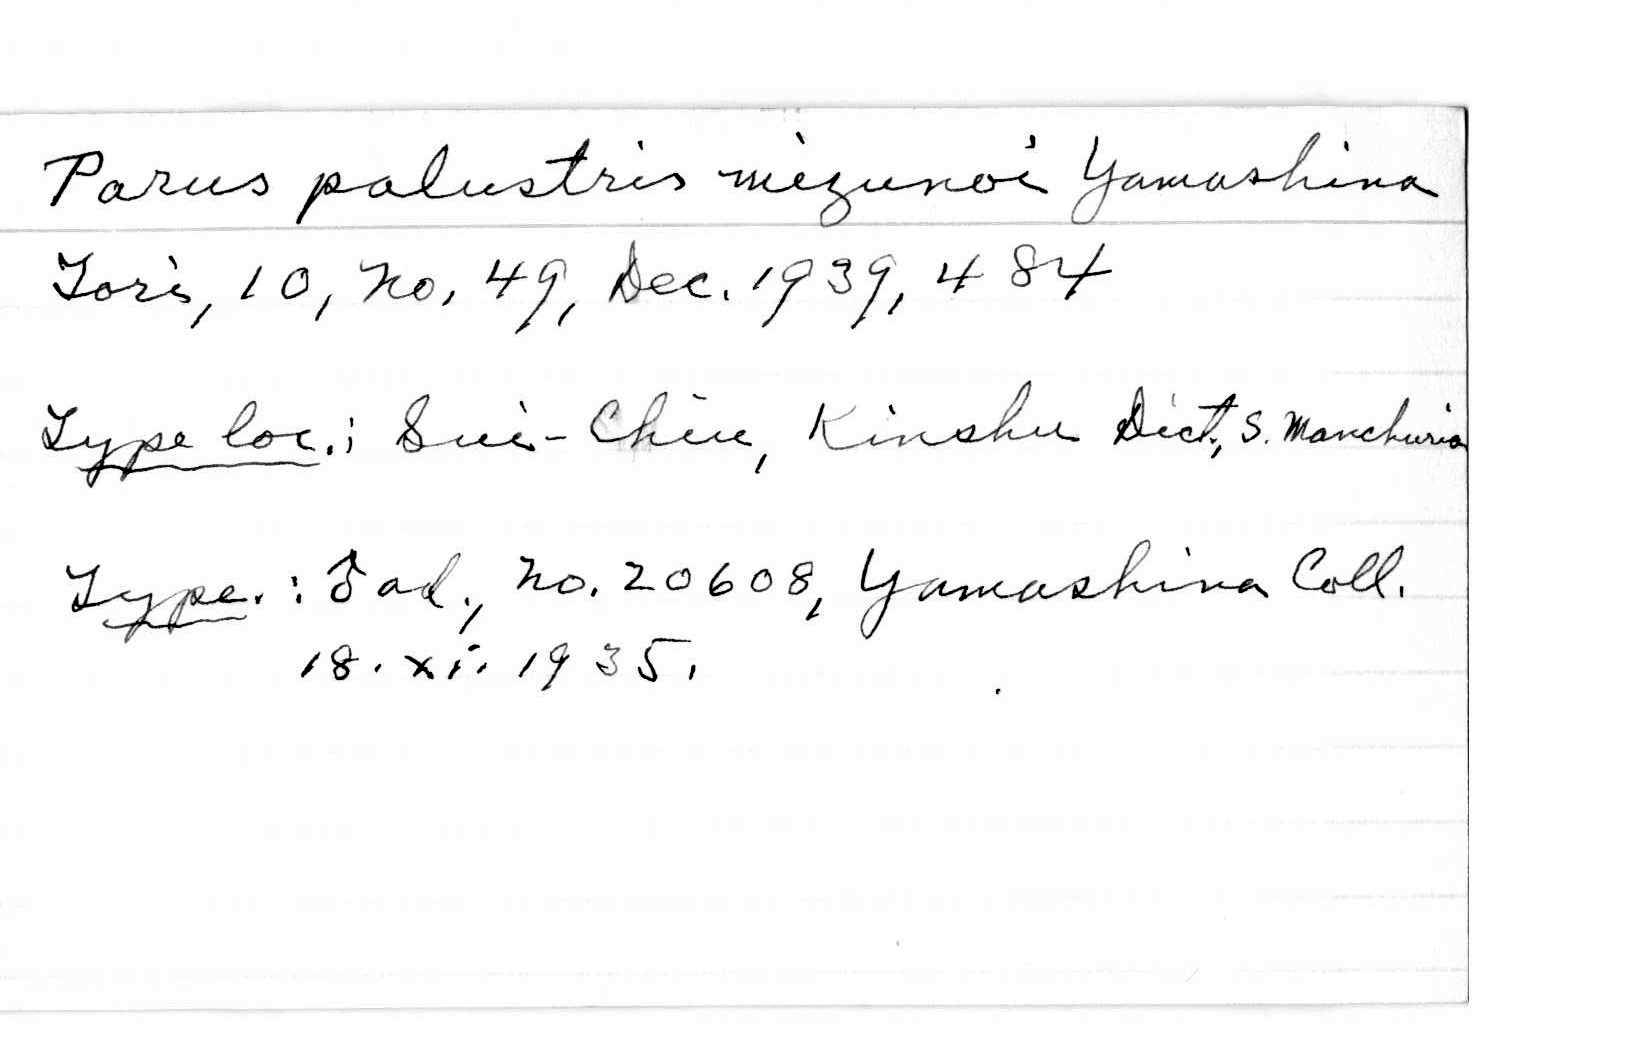 Parus palustris mizunoi Yamashina
Tori, 10, no. 49, Dec. 1939, 484
Type loc.; Sui-Chiu, Kinshu Dict., S. Manchuria
Type. : ♂ ad., no. 20608, Yamashina Coll.
18. xi. 1935.